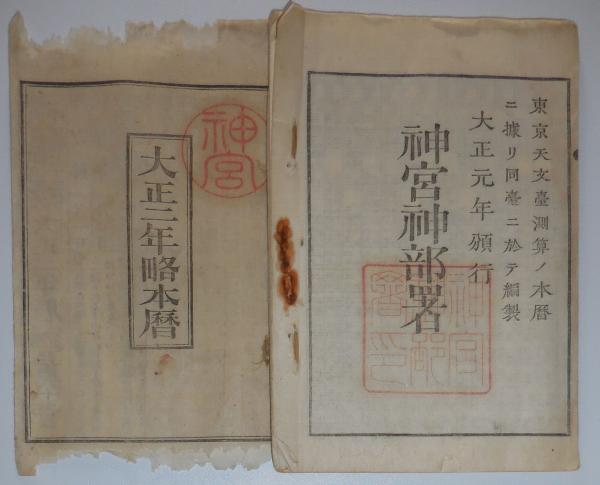 東京天文臺測算ノ本暦
ニ據リ同臺ニ於テ編製
大正元年頒行
神宮神部署
神宮神部署印
神宮
大正二年略本暦